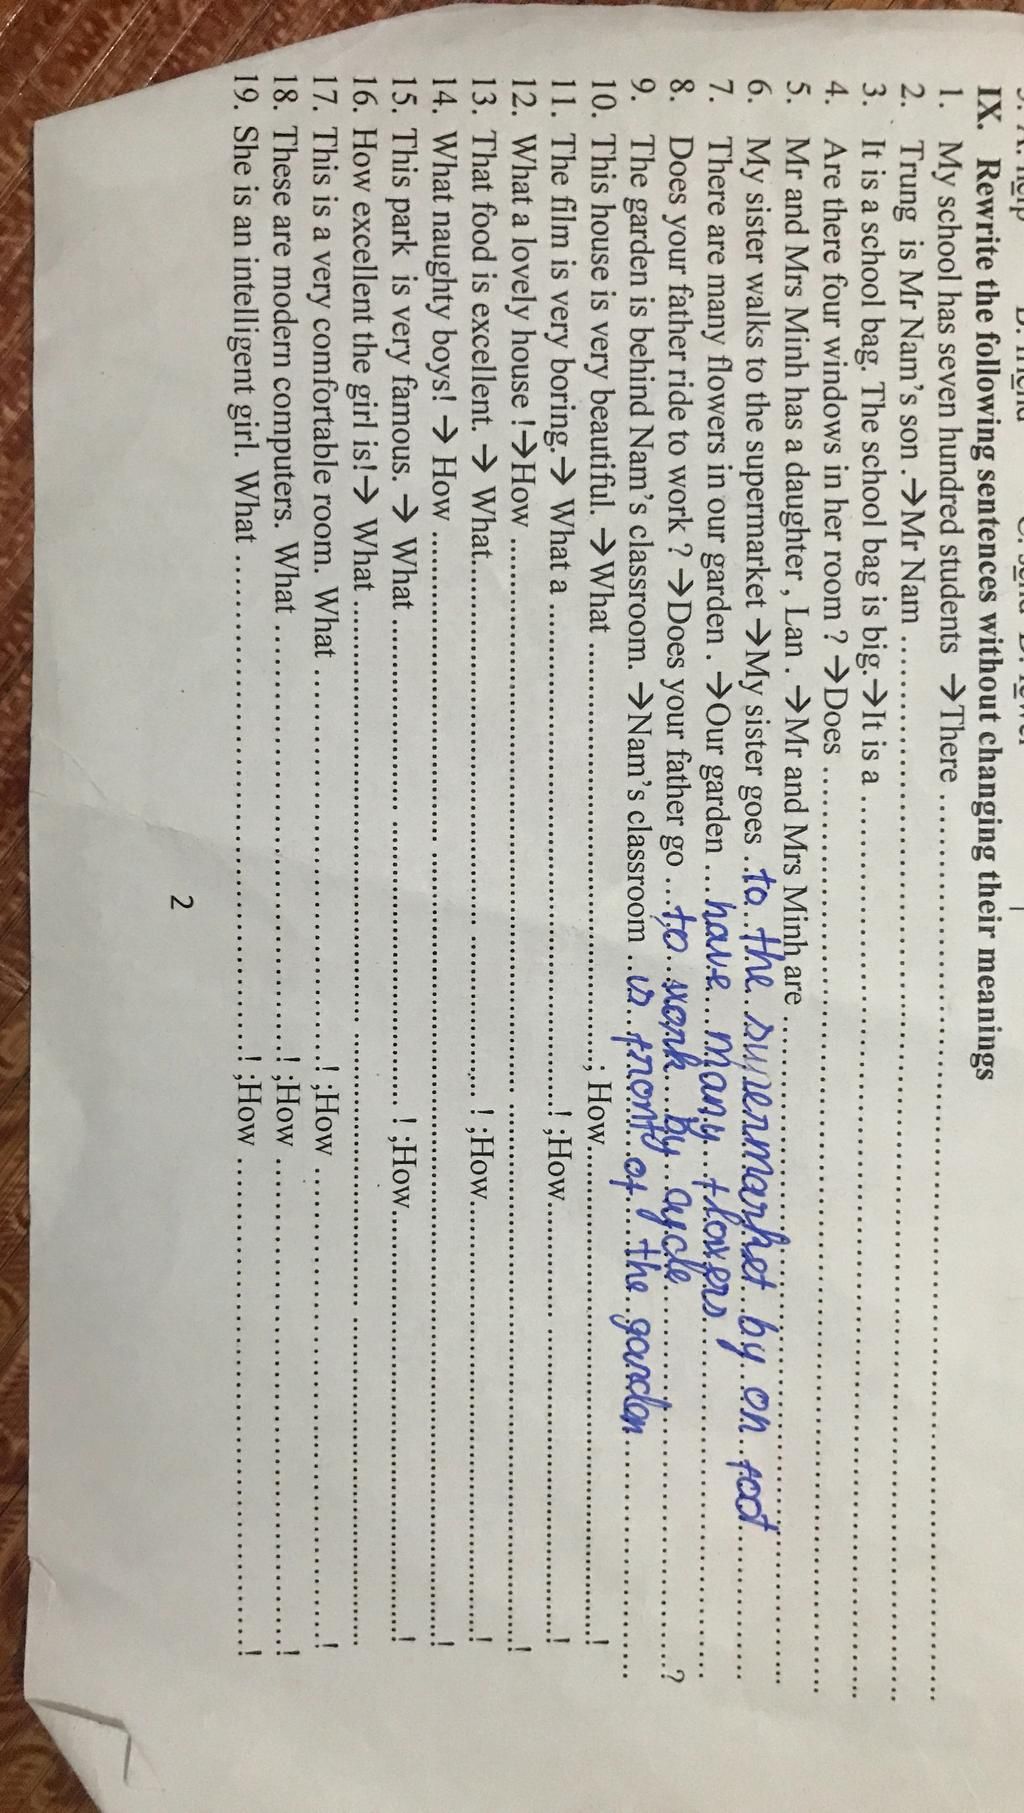 IX. Rewrite the following sentences without changing their meanings
1. My school has seven hundred students →There ..........
2. Trung is Mr Nam's son . →Mr Nam ..........
3. It is a school bag. The school bag is big.→It is a ..........
4. Are there four windows in her room ? →Does ..........
5. Mr and Mrs Minh has a daughter , Lan . →Mr and Mrs Minh are ..........
6. My sister walks to the supermarket →My sister goes ..to the supermarket by on foot..........
7. There are many flowers in our garden . →Our garden ...have many flowers..........
8. Does your father ride to work ? →Does your father go ...to work by cycle..........?
9. The garden is behind Nam's classroom. →Nam's classroom ..is front of the garden..........
10. This house is very beautiful. →What ..........; How..........!
11. The film is very boring.→ What a ..........! ;How..........!
12. What a lovely house !→How ..........!
13. That food is excellent. → What.......... ! ;How..........!
14. What naughty boys! → How ..........!
15. This park is very famous. → What .......... ! ;How..........!
16. How excellent the girl is!→ What ..........
17. This is a very comfortable room. What ..........! ;How ..........!
18. These are modern computers. What ..........! ;How ..........!
19. She is an intelligent girl. What ..........! ;How ..........!
2